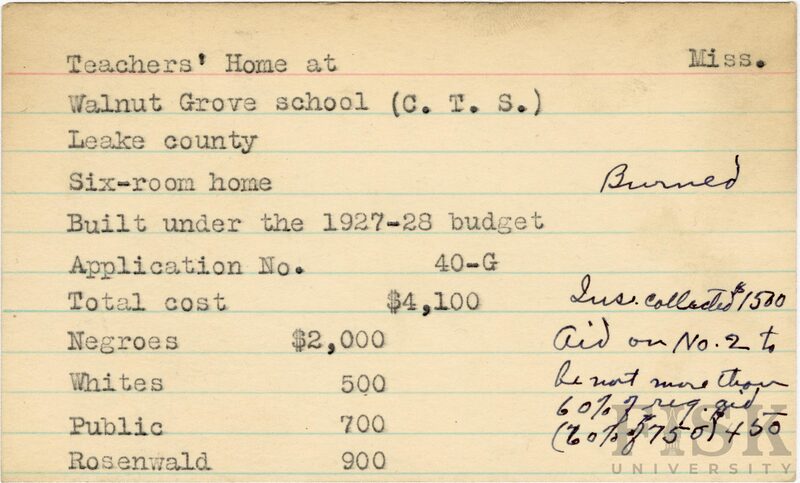 Teachers' Home at Miss.
Walnut Grove school (C. T. S.)
Leake county
Six-room home Burned
Built under the 1927-28 budget
Application No. 40-G
Total cost $4,100 Ins. collected $1500
Negroes $2,000 Aid on No. 2 to
Whites 500 be not more than
60% of reg. aid
Public 700 (60% of $750) $450
Rosenwald 900
FISK
UNIVERSITY